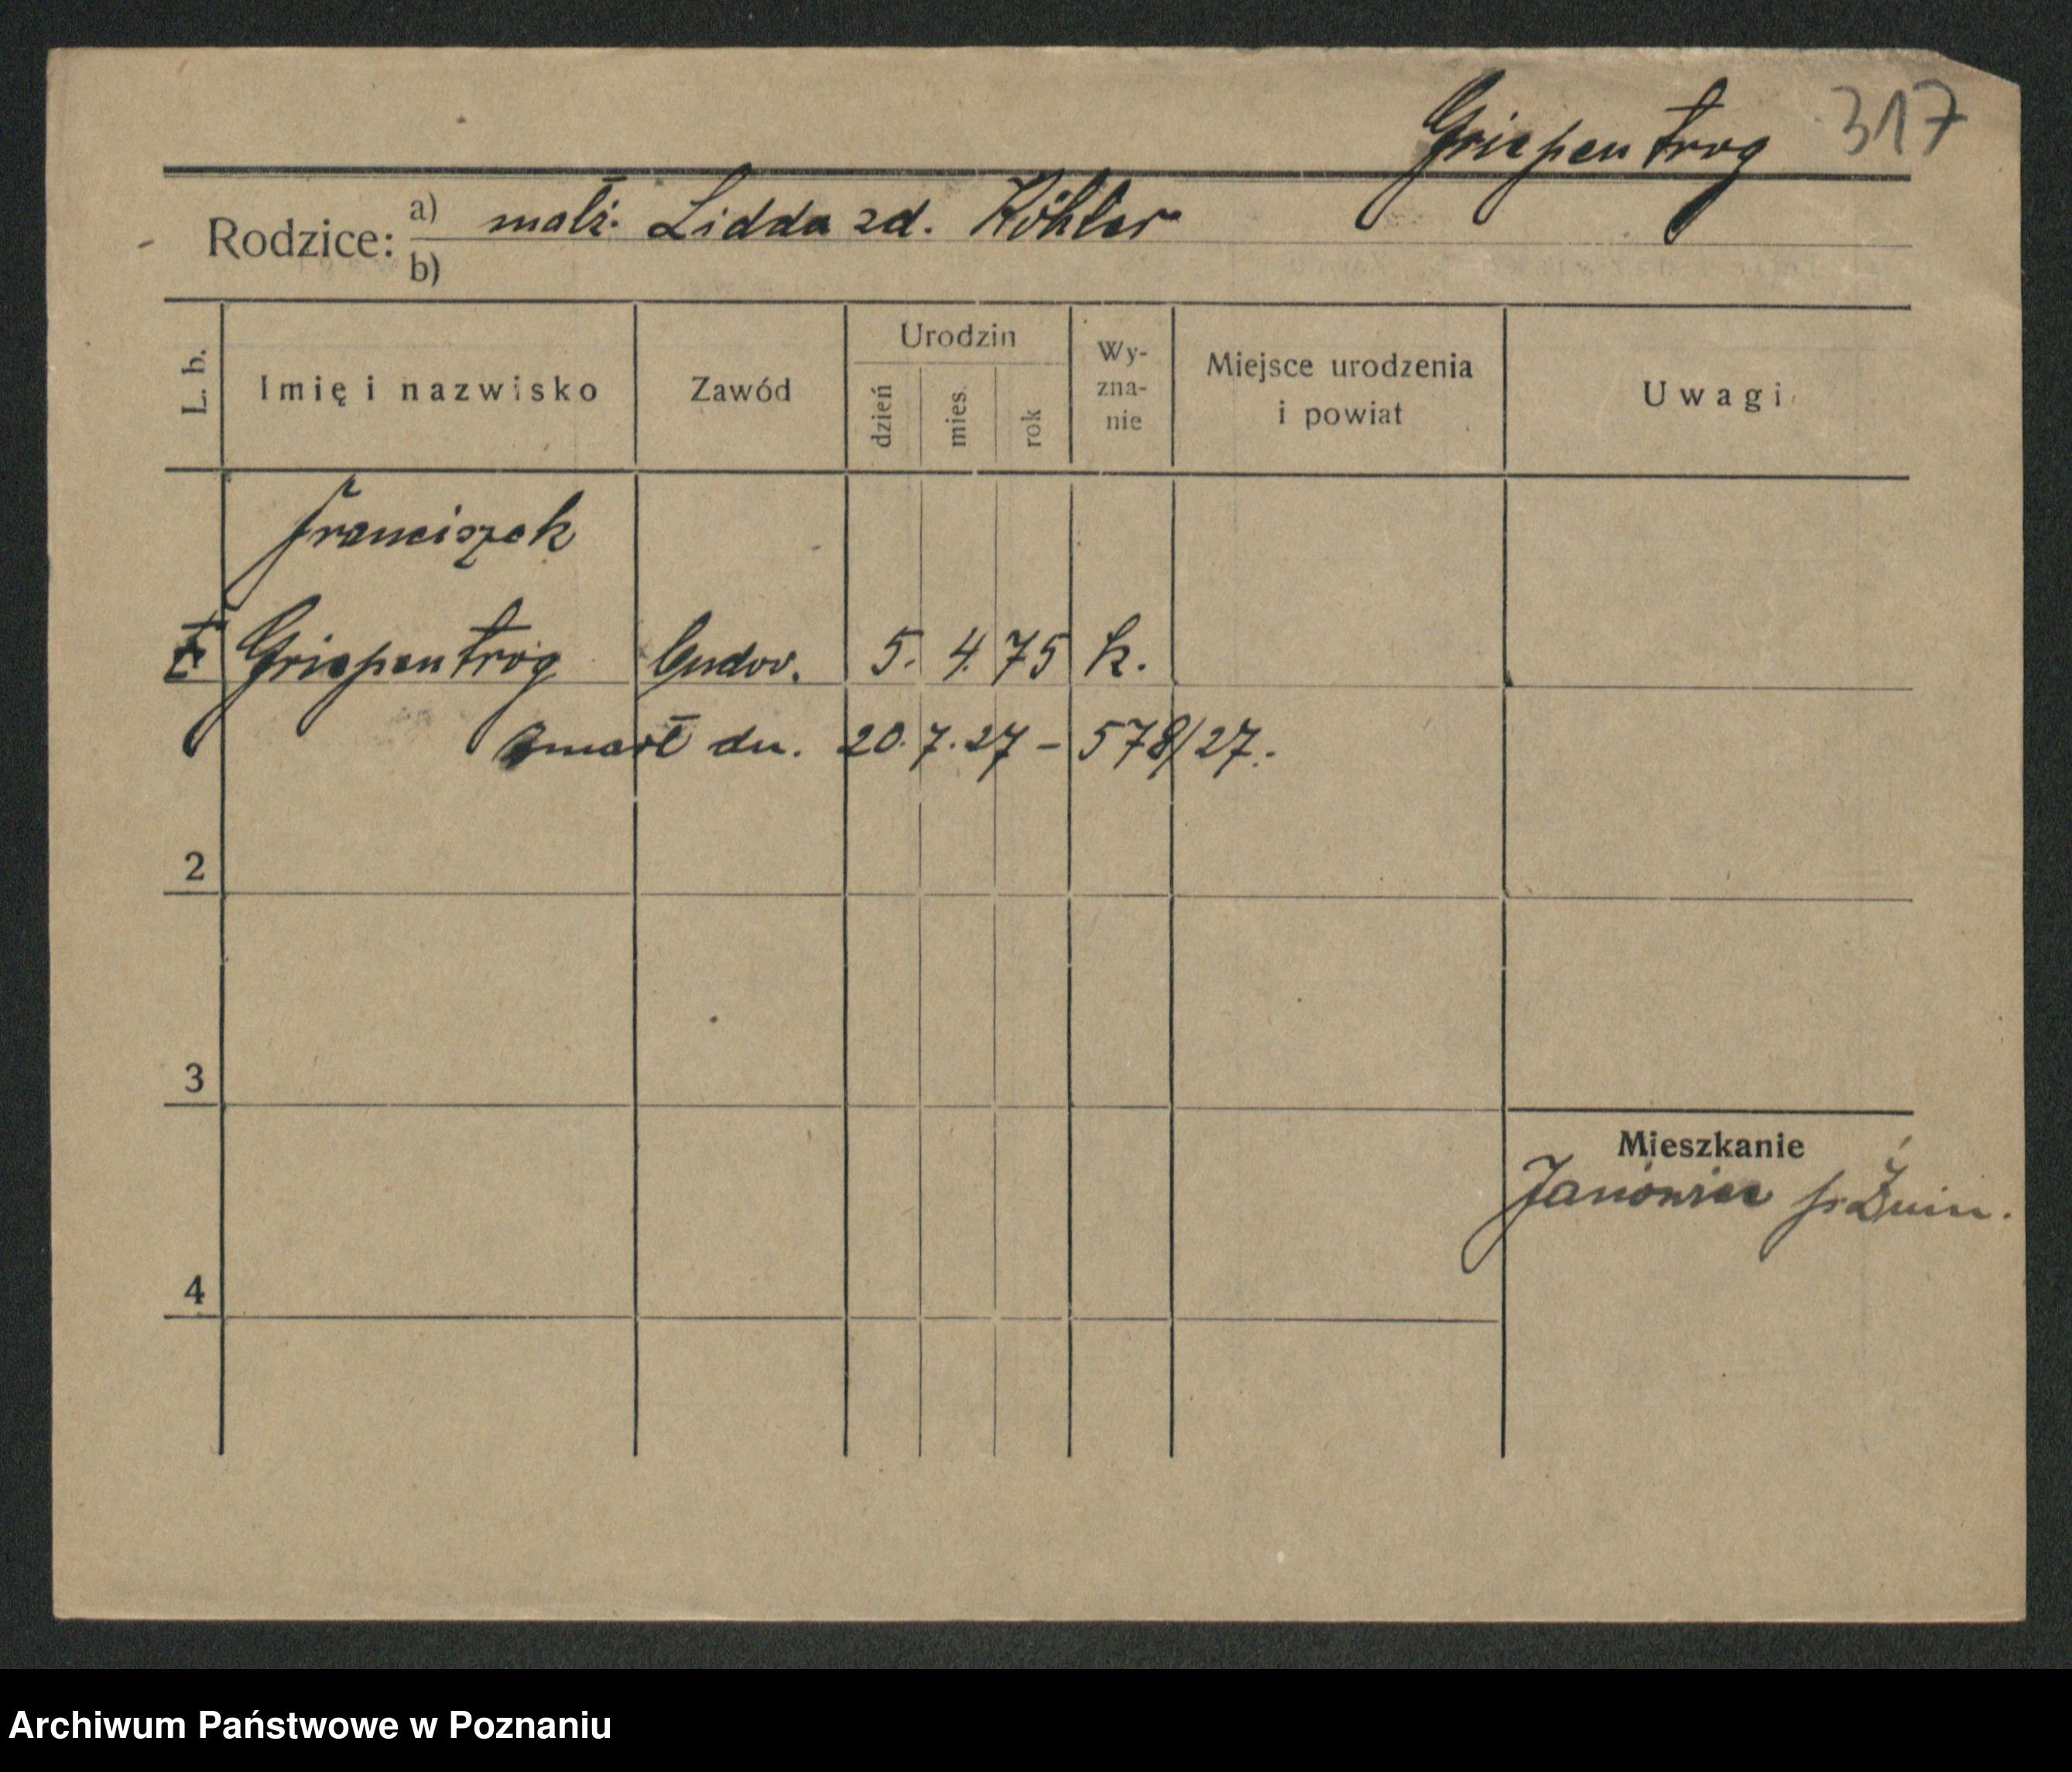 Griepentrog 317
Rodzice: a) małż. Lidda zd. Köhler
b)
L. b. Imię i nazwisko Zawód Urodzin dzień mies. rok Wy-zna-nie Miejsce urodzenia i powiat Uwagi
Franciszek
Griepentrog 5. 4. 75 k.
zmarł dn. 20.7.27 – 578/27.
2
3
Mieszkanie
Janówiec p. Żnin.
4
Archiwum Państwowe w Poznaniu